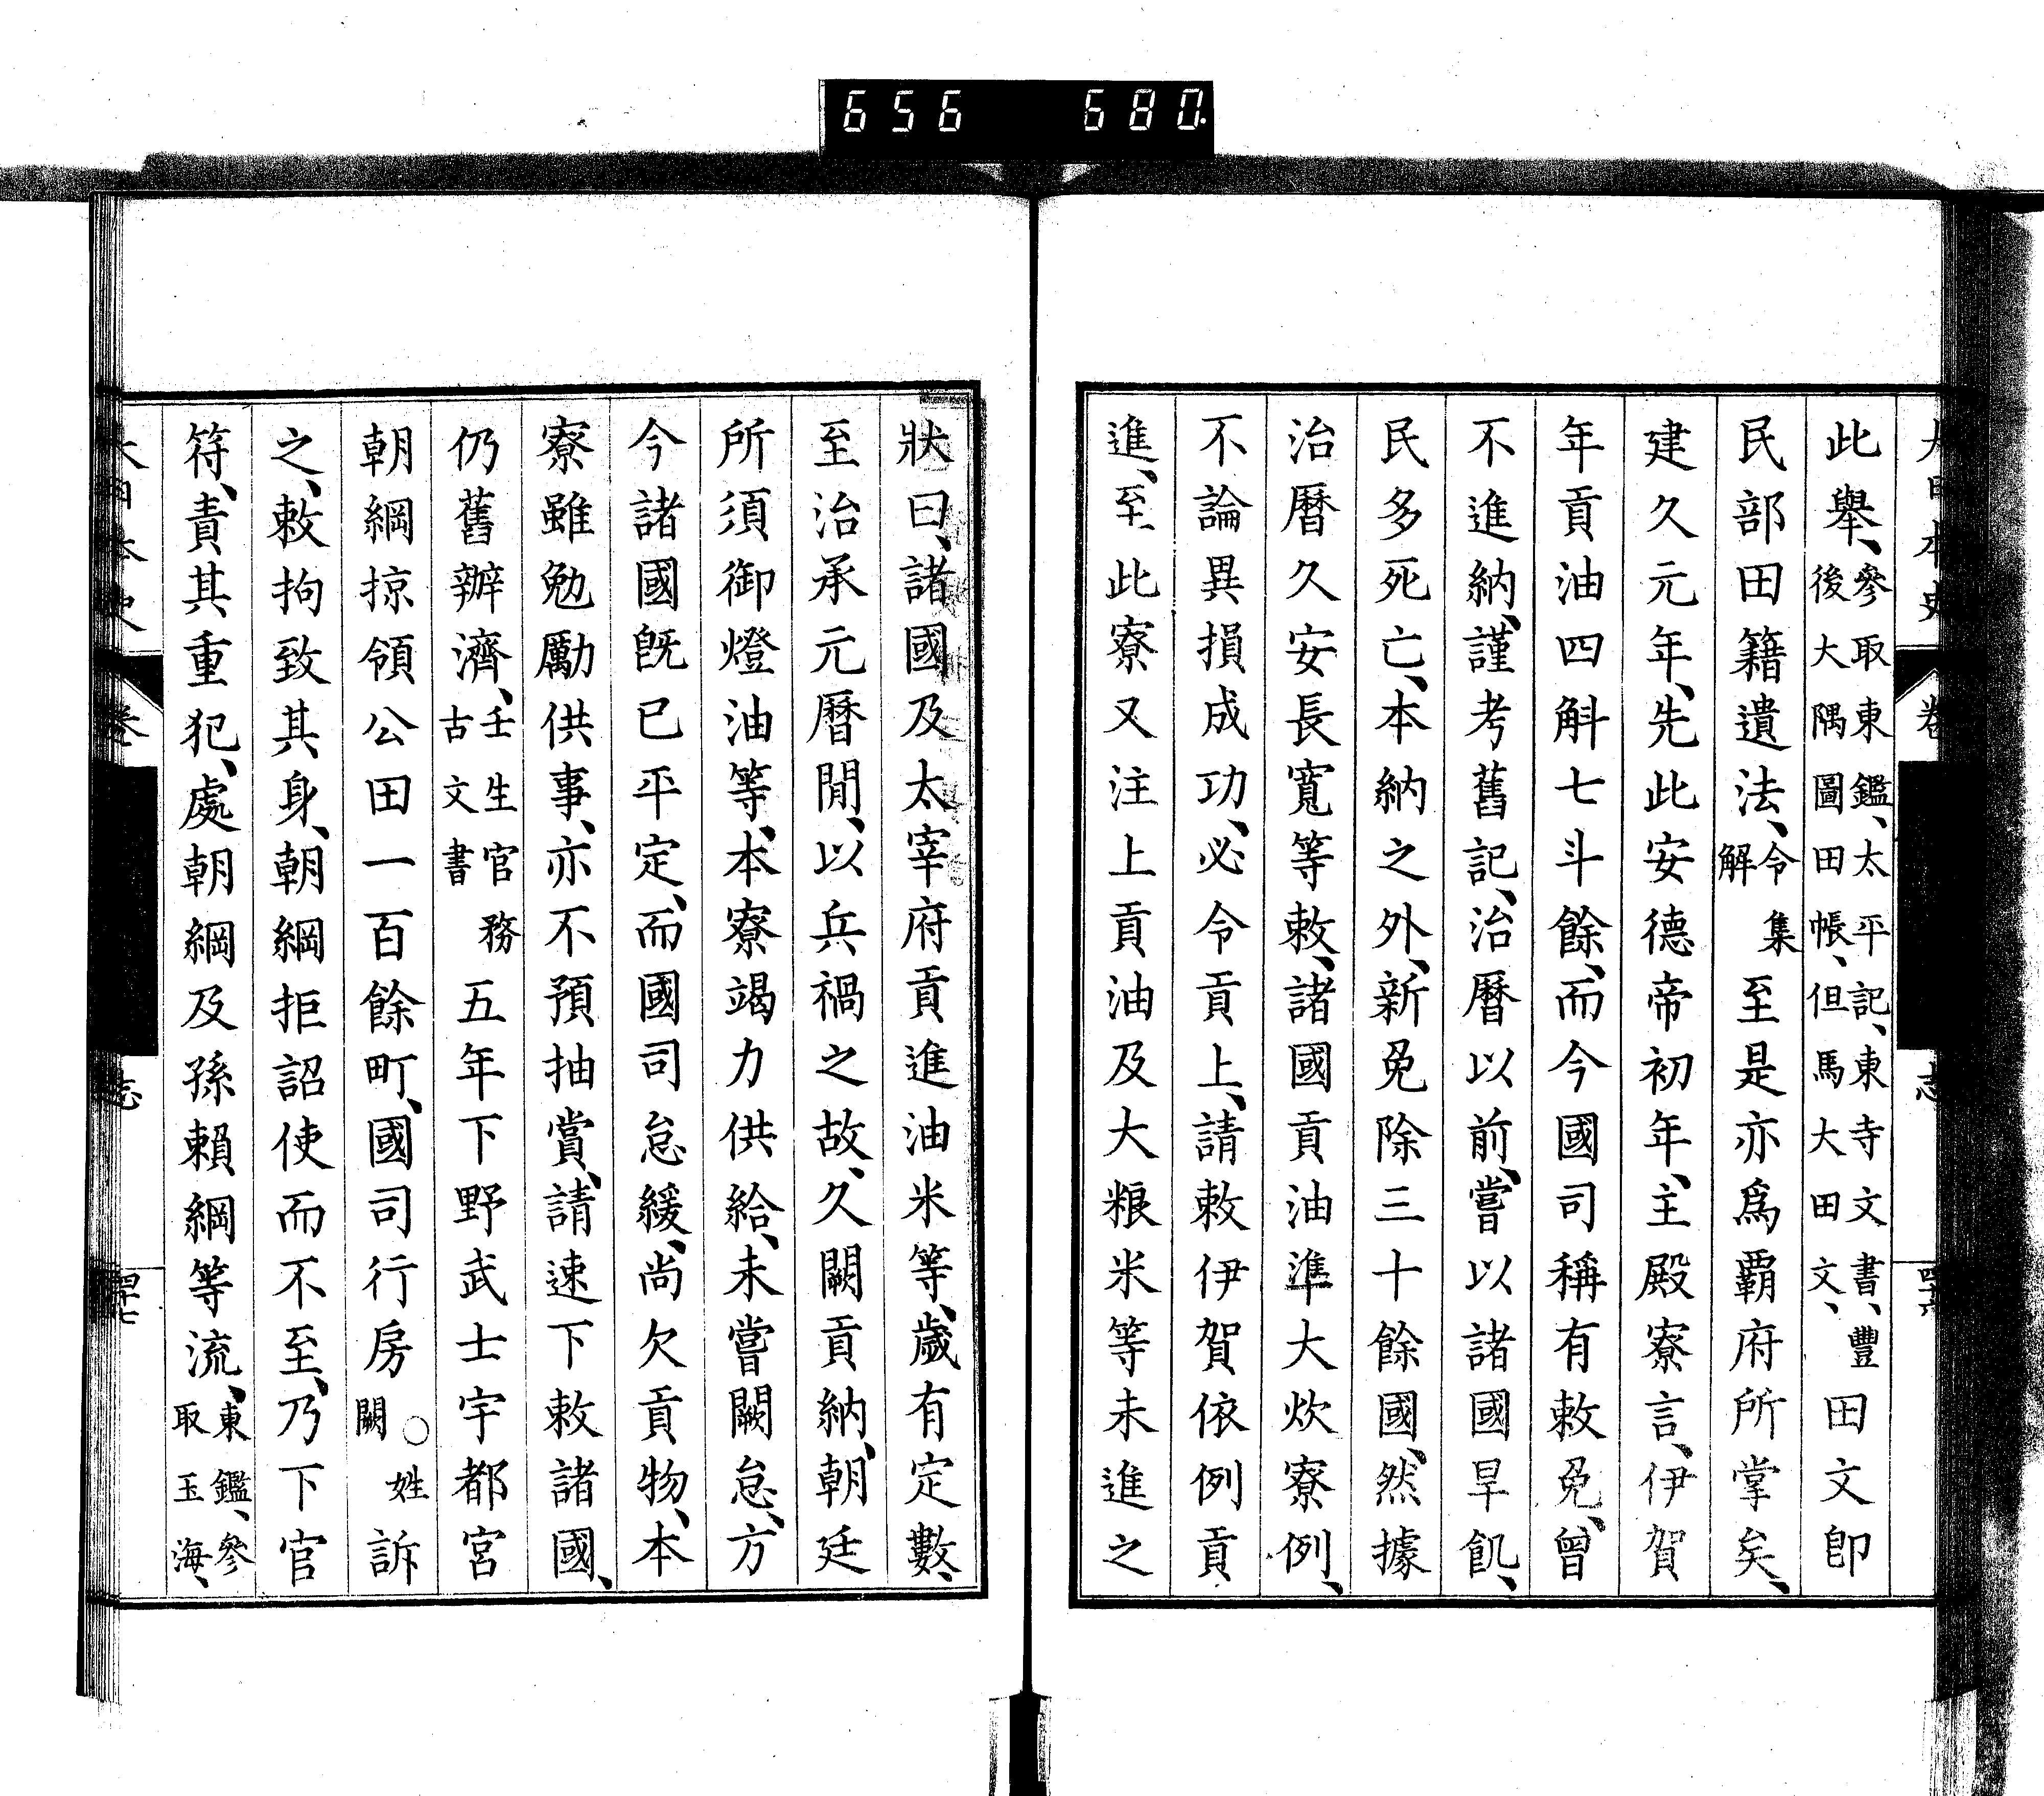 656 680.
大日本史 卷 志 四十六
此舉、參取東鑑、太平記、東寺文書、豐後大隅圖田帳、但馬大田文、田文卽
民部田籍遺法、令集解至是亦爲覇府所掌矣、
建久元年、先此安德帝初年、主殿寮言、伊賀
年貢油四斛七斗餘、而今國司稱有敕免、曾
不進納、謹考舊記、治曆以前、嘗以諸國旱飢、
民多死亡、本納之外、新免除三十餘國、然據
治曆久安長寬等敕、諸國貢油準大炊寮例、
不論異損成功、必令貢上、請敕伊賀依例貢
進、至此寮又注上貢油及大粮米等未進之
狀曰、諸國及太宰府貢進油米等、歲有定數、
至治承元曆閒、以兵禍之故、久闕貢納、朝廷
所須御燈油等、本寮竭力供給、未嘗闕怠、方
今諸國旣已平定、而國司怠緩、尚欠貢物、本
寮雖勉勵供事、亦不預抽賞、請速下敕諸國、
仍舊辦濟、壬生官務古文書五年下野武士宇都宮
朝綱掠領公田一百餘町、國司行房○姓闕訴
之、敕拘致其身、朝綱拒詔使而不至、乃下官
符、責其重犯、處朝綱及孫賴綱等流、東鑑、參取玉海、
大日本史 卷 志 四十七